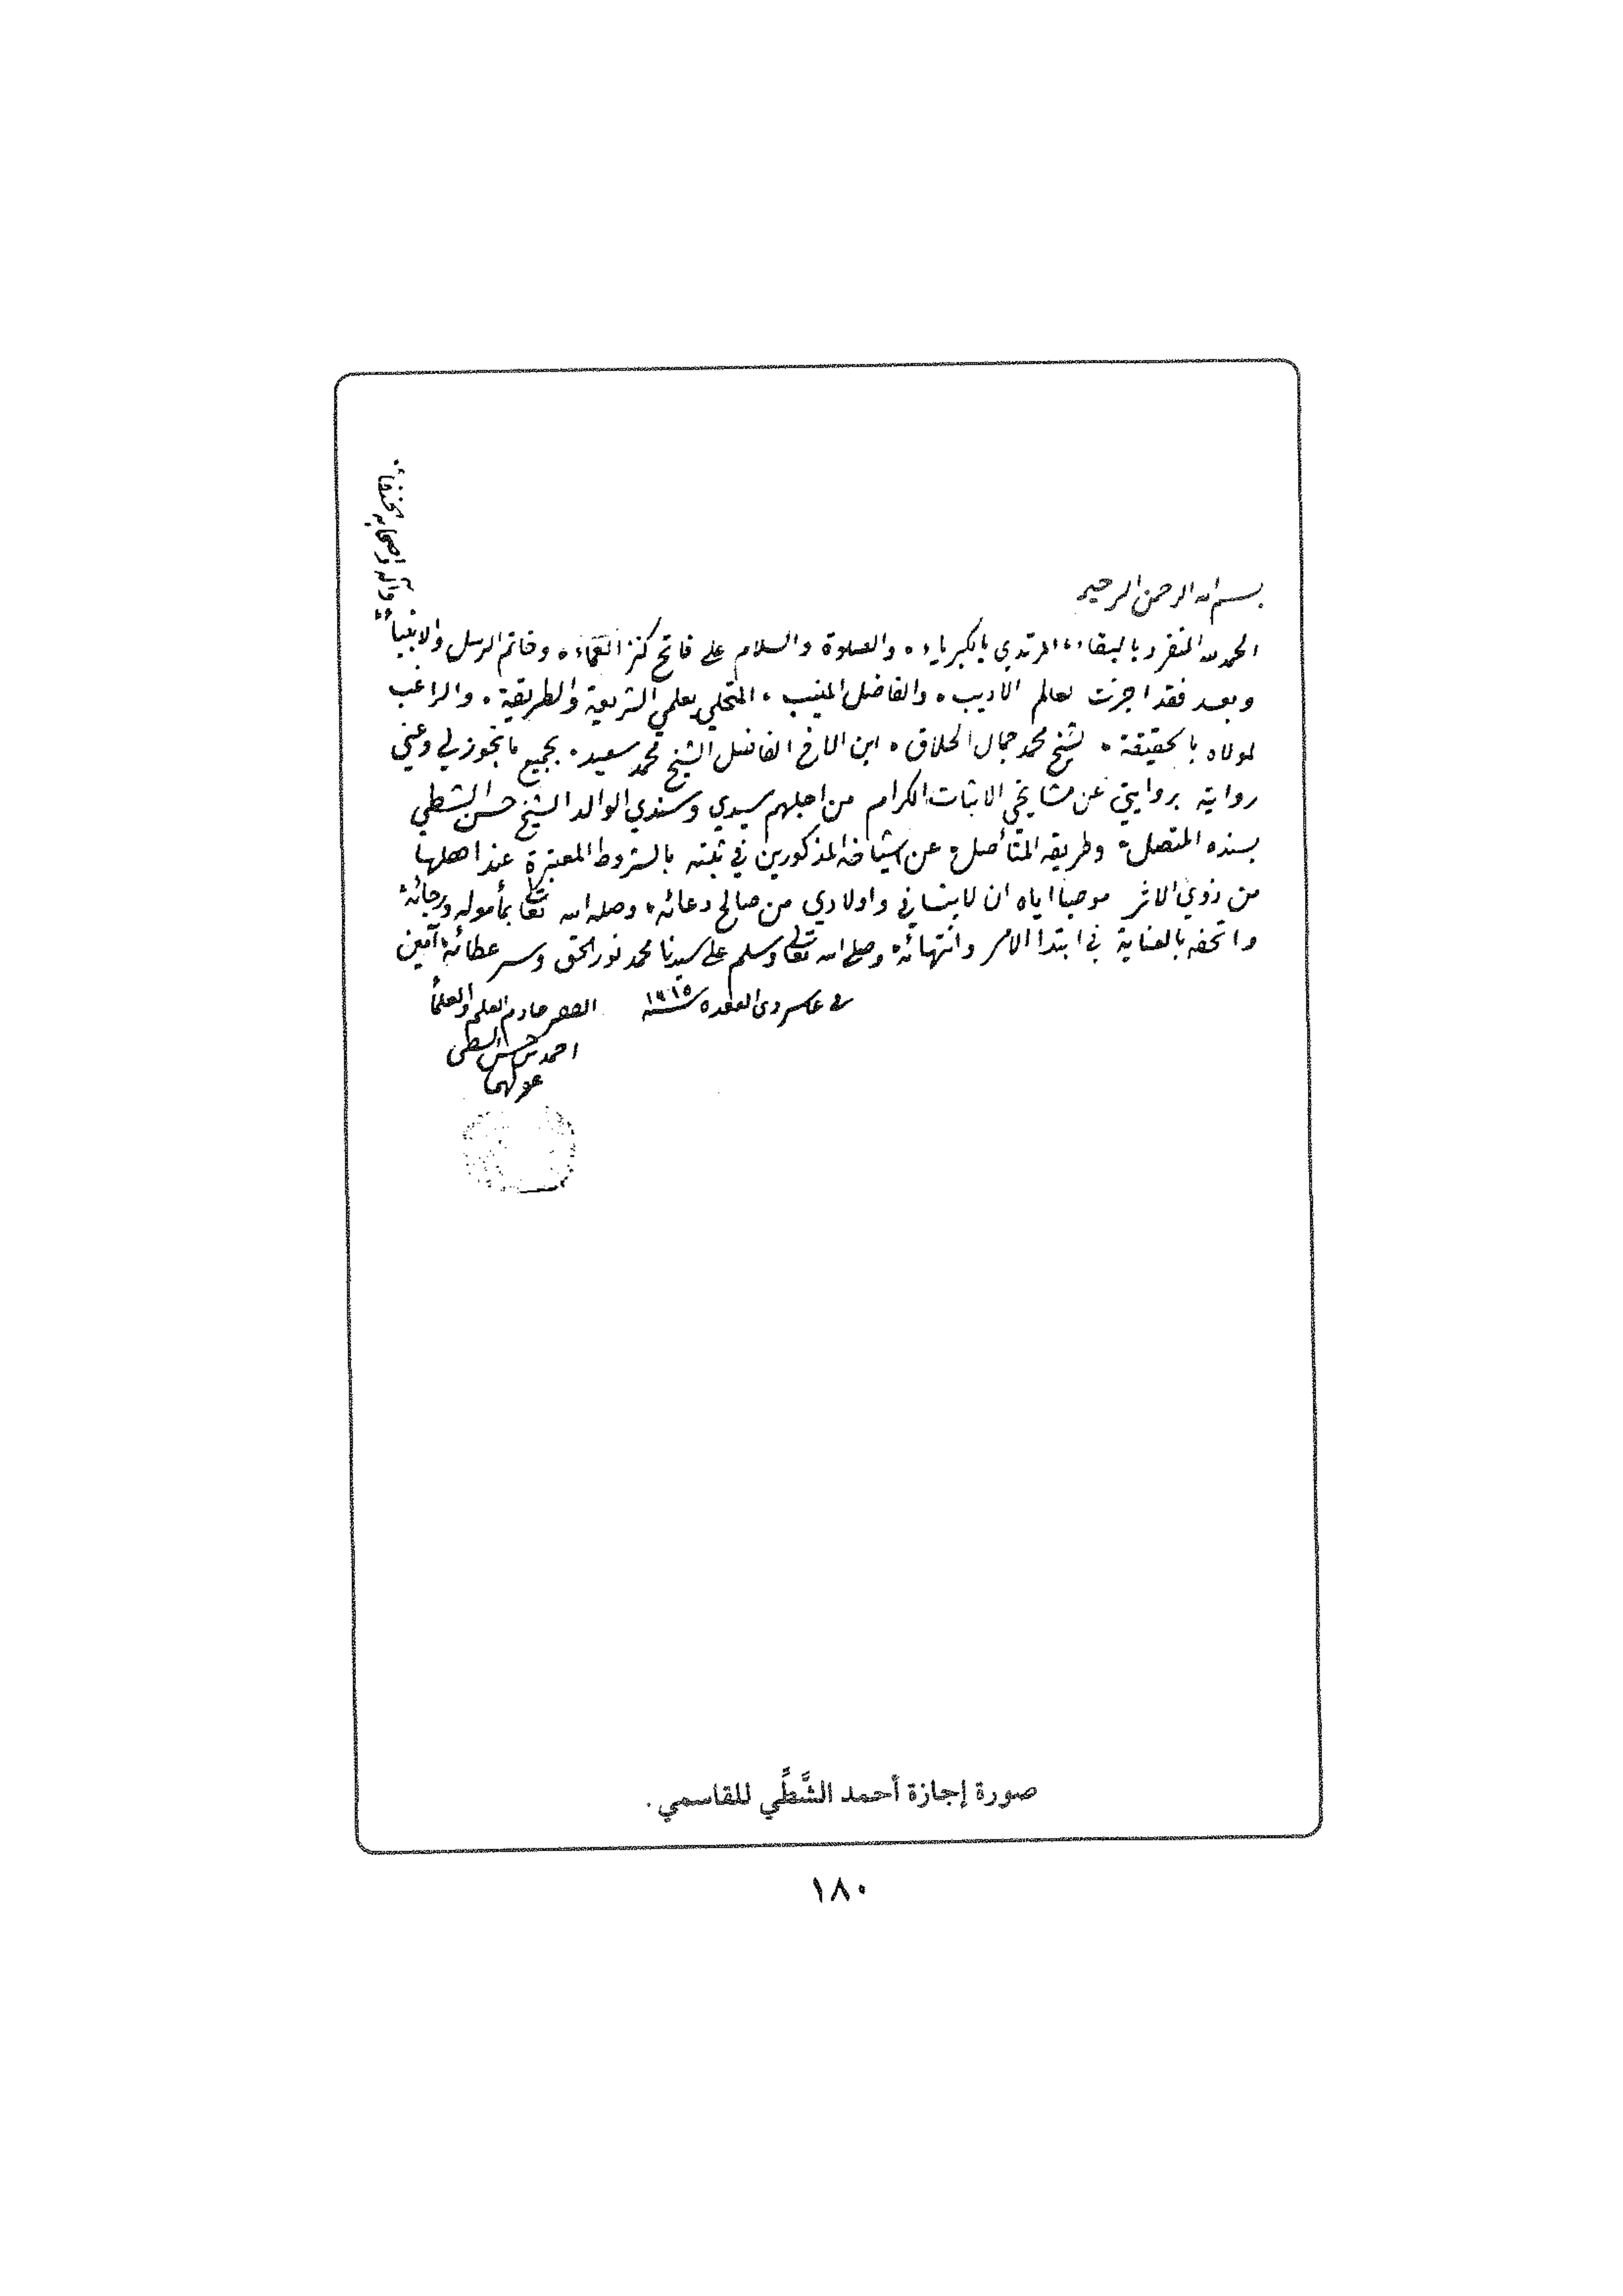 بسم الله الرحمن الرحيم
الحمد لله المتفرد بالبقاء، المرتدي بالكبرياء، والصلوة والسلام على فاتح كنز العماء، وخاتم الرسل والانبياء
وآله واصحابه الحنفاء
وبعد فقد اجزت لعالم الاديب، والفاضل المنيب، المتحلي بعلمي الشريعة والطريقة، والراغب
لمولاه بالحقيقة، لشيخ محمد جمال الحلاق، ابن الاخ الفاضل الشيخ محمد سعيد، بجميع ما تجوز لي وعني
رواية بروايتي عن مشايخي الاثبات الكرام من اجلهم سيدي وسندي الوالد الشيخ حسن الشطي
بسنده المتصل، وطريقه المتأصل، عن اشياخه المذكورين في ثبته بالشروط المعتبرة عند اهلها
من ذوي الاثر موصيا اياه ان لا ينساني واولادي من صالح دعائه، وصله الله تعالى بمأموله ورجائه
واتحفه بالعناية في ابتدا الامر وانتهائه، وصلى الله تعالى وسلم على سيدنا محمد نور الحق وسر عطائه، آمين
في ذي القعده سنة الحقير خادم العلم والعلما
احمد بن حسن الشطي
عفي لهما
صورة إجازة أحمد الشَّطِّي للقاسمي.
١٨٠